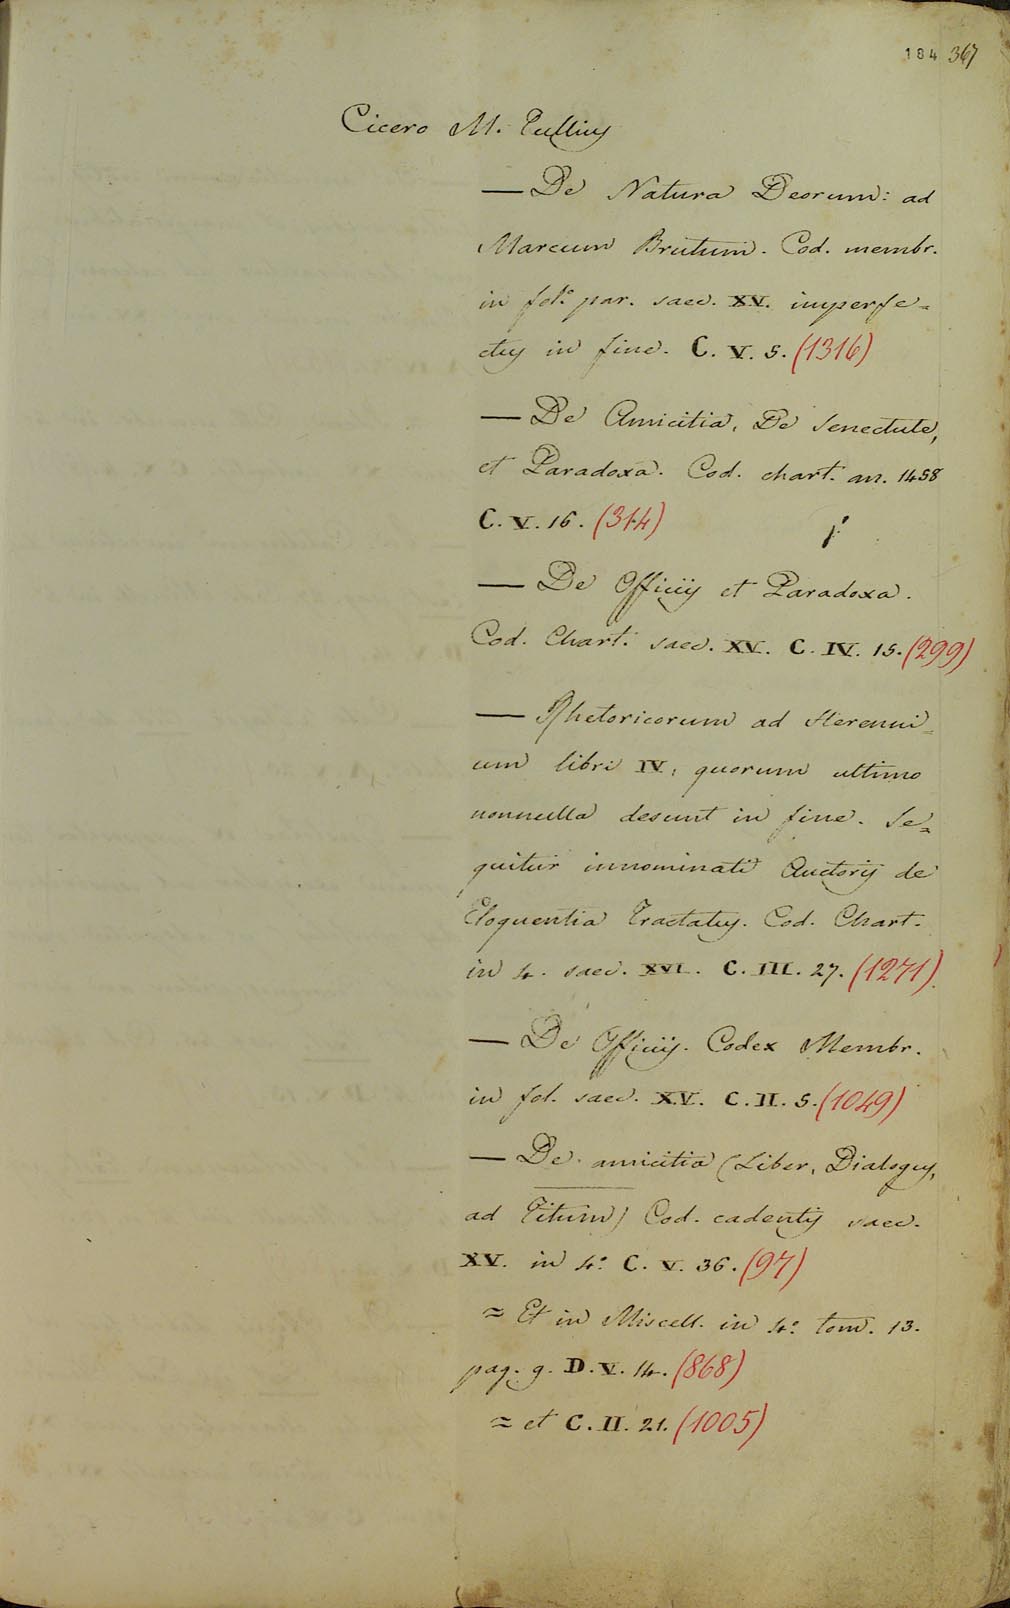 184 367
Cicero M. Tullius
— De Natura Deorum: ad
Marcum Brutum. Cod. membr.
in fol.° par. saec. XV. imperfe=
ctus in fine. C. V. 5. (1316)
— De Amicitia, De Senectute,
et Paradoxa. Cod. chart. an. 1458
C. V. 16. (314)
— De Officiis et Paradoxa.
Cod. Chart. saec. XV. C. IV. 15. (299)
— Rhetoricorum ad Herenni=
um libri IV, quorum ultimo
nonnulla desunt in fine. Se=
quitur innominati Auctoris de
Eloquentia Tractatus. Cod. Chart.
in 4. saec. XVI. C. III. 27. (1271).
— De Officiis. Codex Membr.
in fol. saec. XV. C. II. 5. (1049)
— De amicitia (Liber, Dialogus,
ad Titum) Cod. cadentis saec.
XV. in 4.° C. V. 36. (97)
≈ Et in Miscell. in 4.° tom. 13.
pag. 9. D. V. 14. (868)
≈ et C. II. 21. (1005)